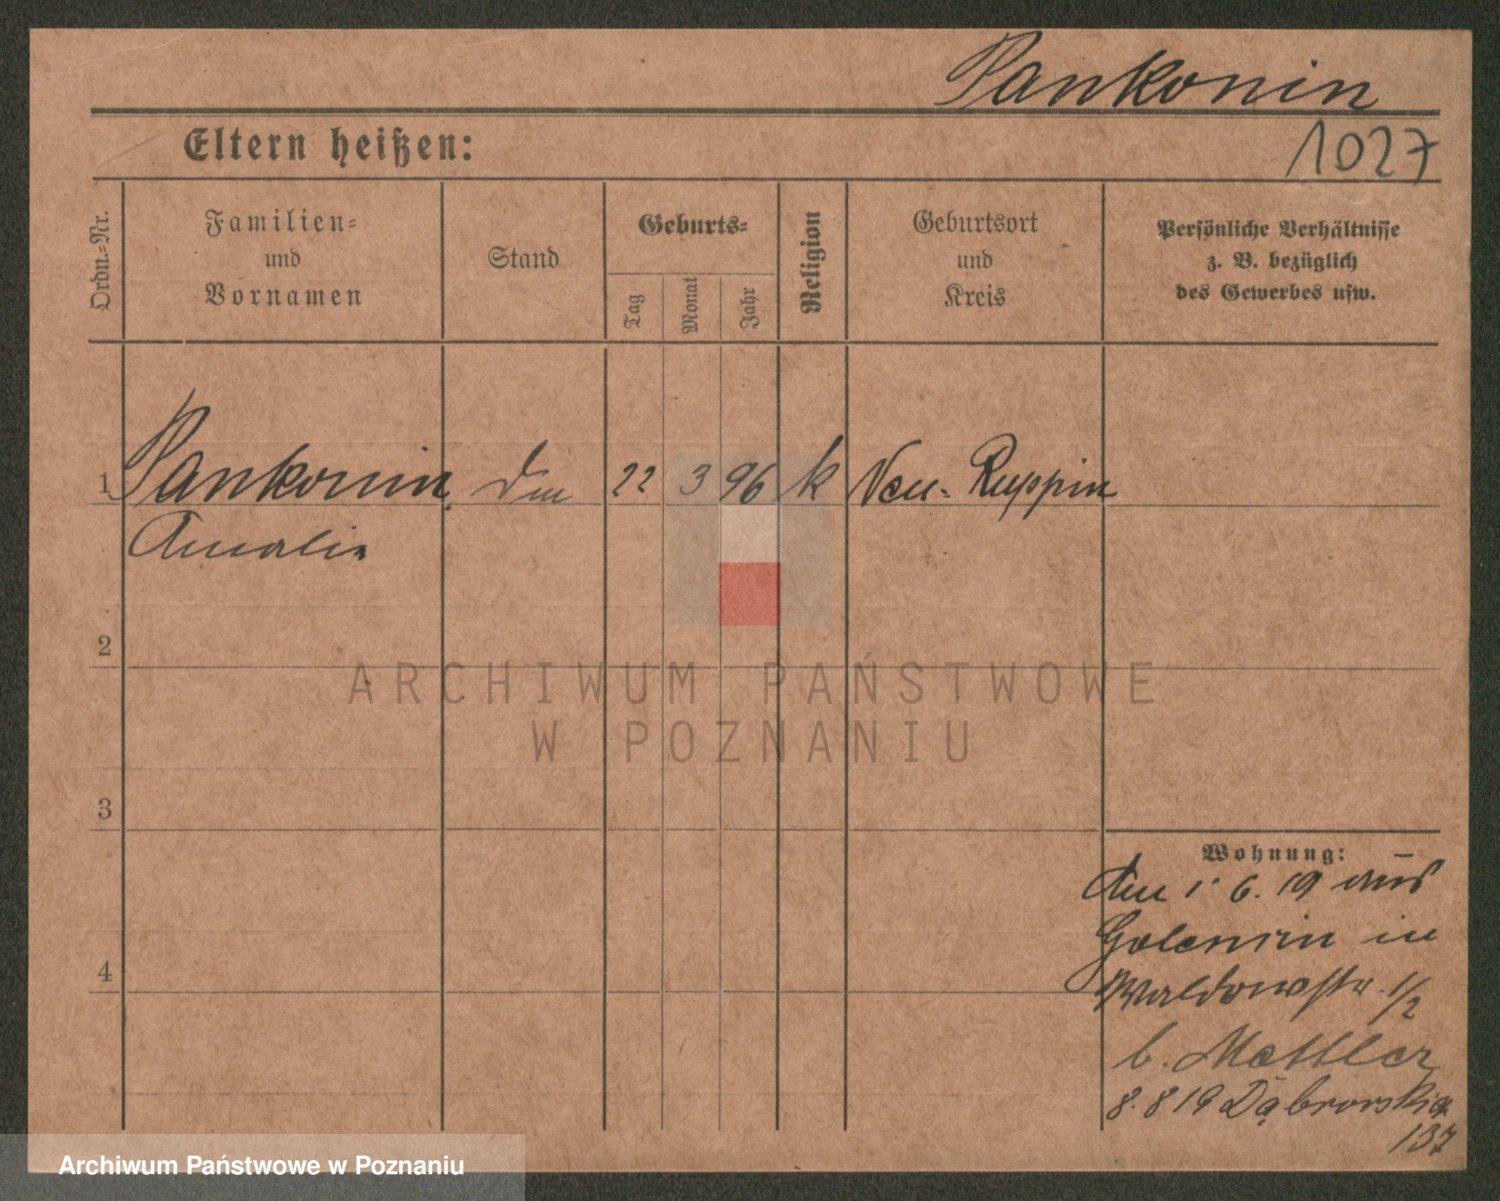 Pankonin
1027
Eltern heißen:
Ordn.-Nr.
Familien-
und
Vornamen
Stand
Geburts-
Tag
Monat
Jahr
Religion
Geburtsort
und
Kreis
Persönliche Verhältnisse
z. B. bezüglich
des Gewerbes usw.
1 Pankonin, 22 3 96 k Neu-Ruppin
Amalia
2
3
4
Wohnung:
1. 6. 19 aus
Golencin in
Waldowstr. 1/2
b. Mettler
8. 8 19 Dąbrowskiego
137
ARCHIWUM PAŃSTWOWE
W POZNANIU
Archiwum Państwowe w Poznaniu